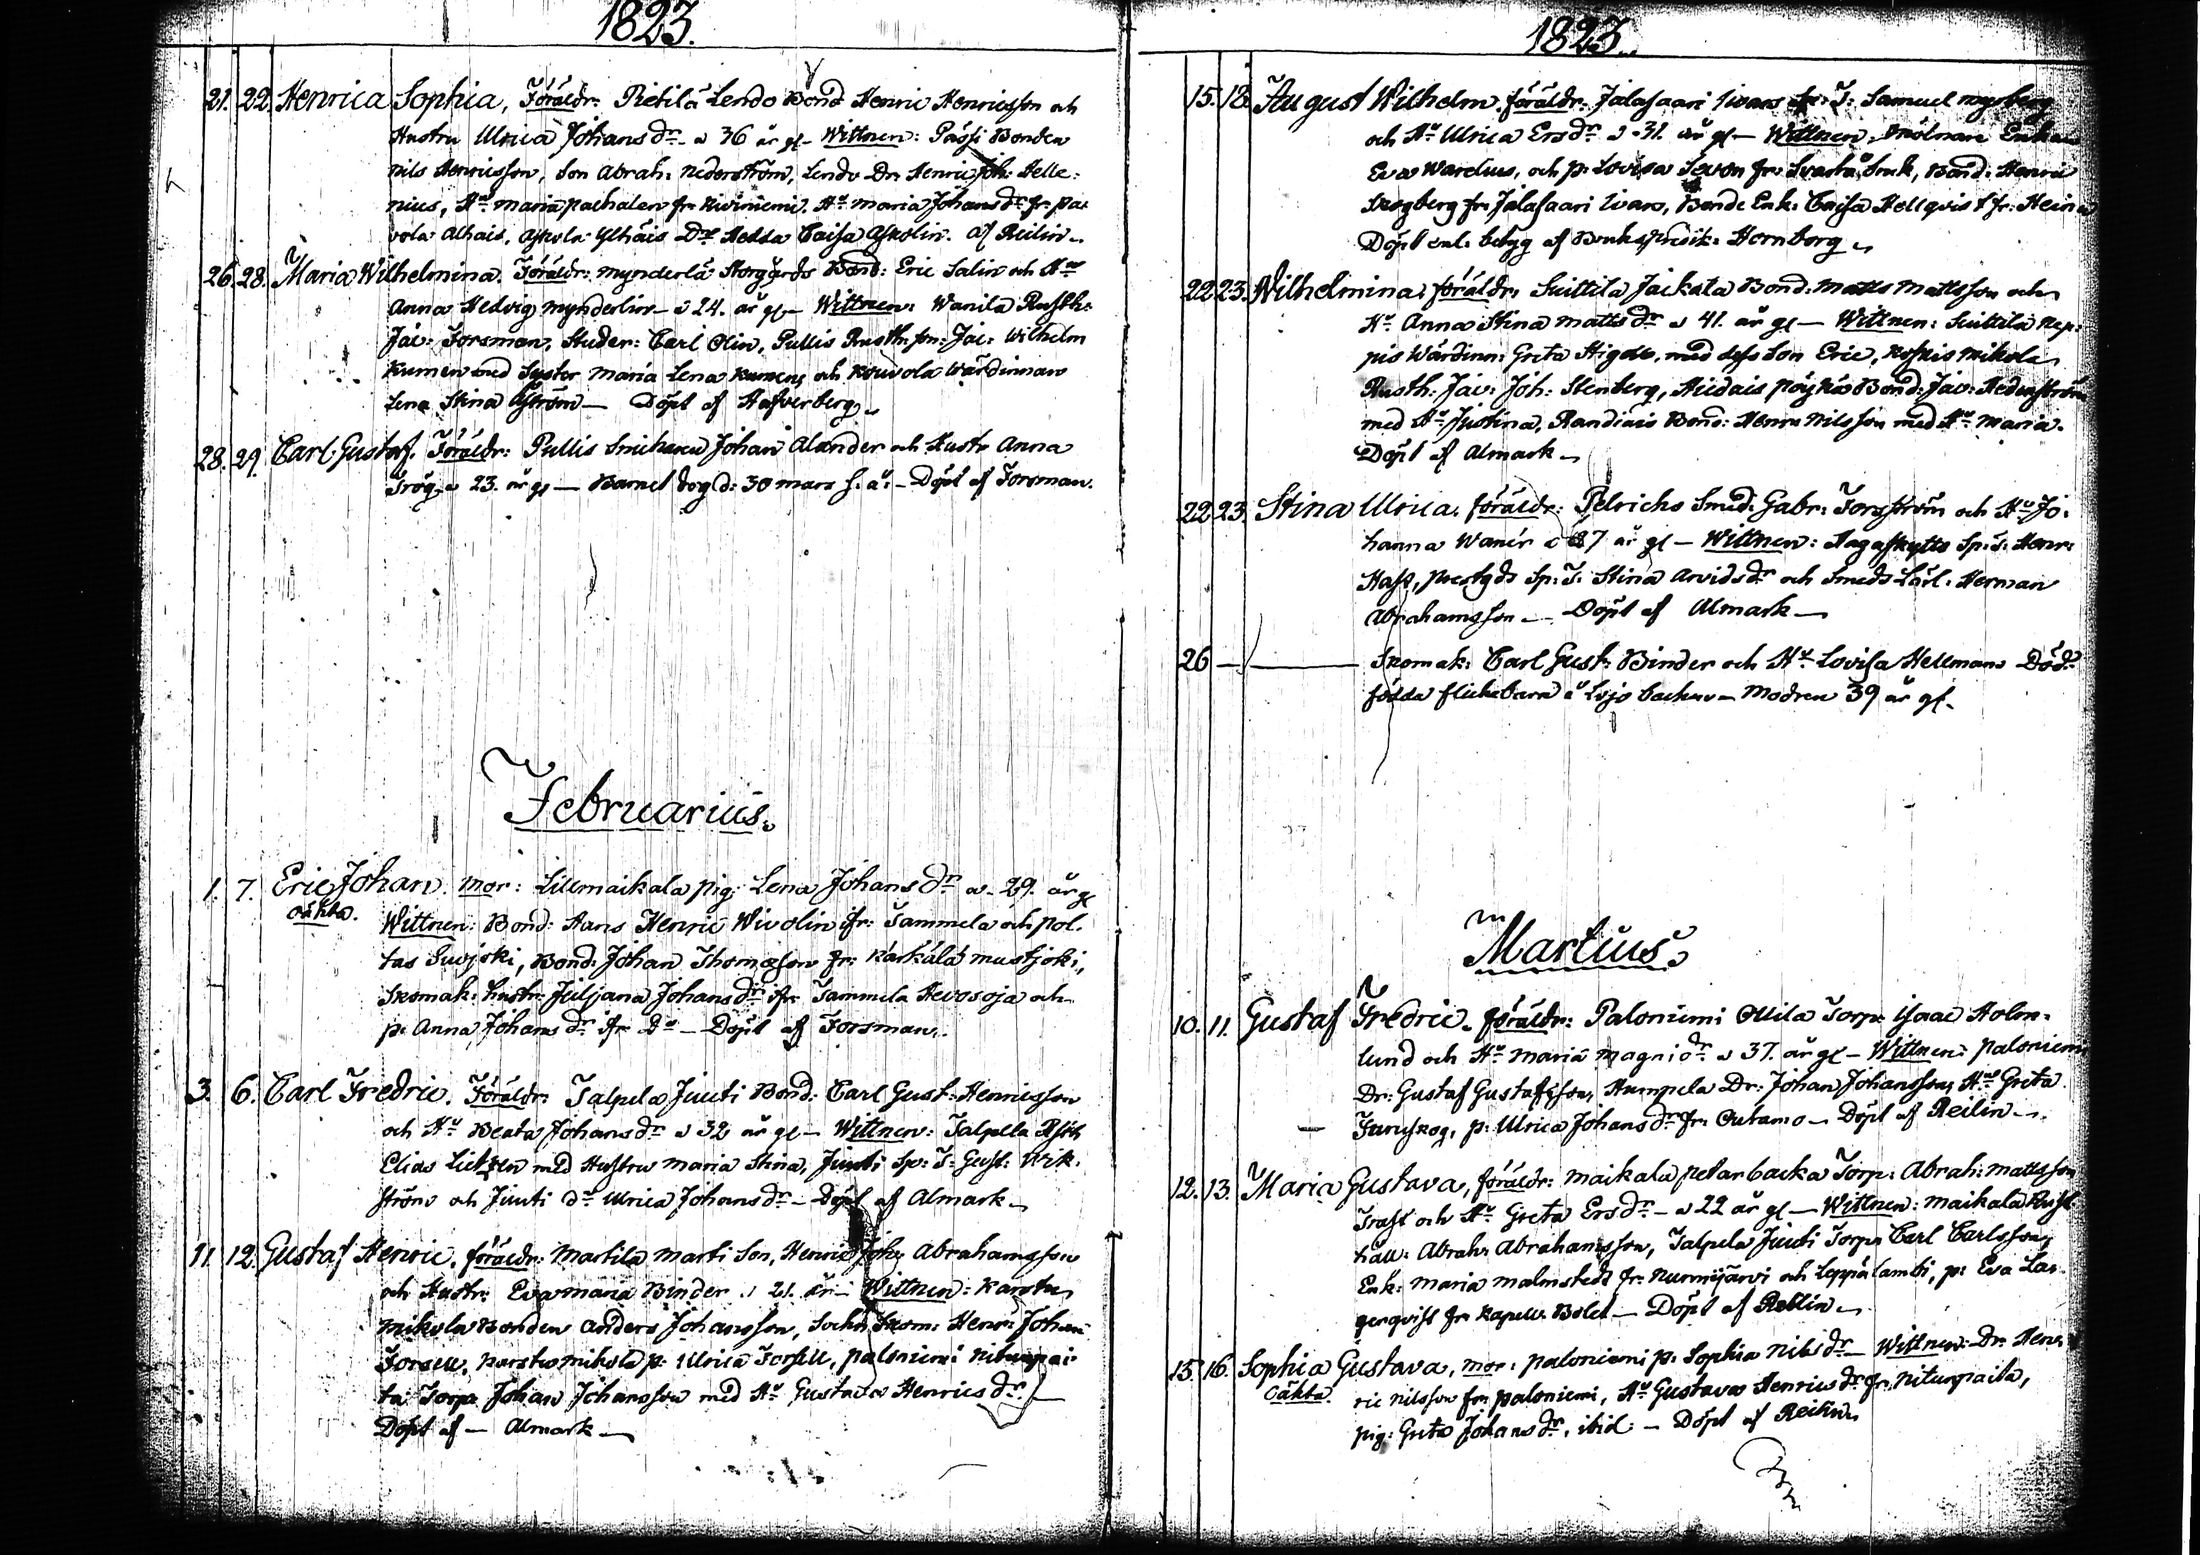 1823.
21. 22. Henrica Sophia, Föräldr: Pietilä Lendo Bond Henric Henricsson och
Hustru Ulrica Johans dr - a 36 år gl - Wittnen: Passi Bonden
Nils Henricsson, Son Abrah: Nederström, Lendo Dr. Henric Joh: Helle:
nius, Hu Maria Pachalen fr. Kiviniemi. Hu Maria Johans dr fr. Pa:
vola Alhais, Ylhäis Dr Hedda Caisa Askolin. af Reilin.
26. 28. Maria Wilhelmina. Föräldr: Mynderlä Storgårds Bond: Eric Salin och Hu
Anna Hedvig Mynderlin - a 24. år gl - Wittnen: Wanila Rusth:
Jac: Forsman, Studer: Carl Olin, Pullis Rusth. son: Jac: Wilhelm
Kumen med Syster Maria Lena Kumen och Kouvola Wärdinnan
Lena Stina Åström - Döpt af Hafverberg.
28. 29. Carl Gustaf. Föräldr: Pullis Johan Alander och Hustr Anna
Frög a 23. år gl - Barnet dog d: 30 mars s. å: - Döpt af Forsman.
Februarius.
1. 7. Eric Johan. mor: Lillmaikala pig: Lena Johans dr a 29. år gl
oäkta. Wittnen: Bond: Hans Henric Wivolin ifr: Sammela och Pol:
tas Suojoki, Bond: Johan Thomasson fr: Kärkälä Mustjoki,
Skomak: hustr: Juljana Johans dr ifr Sammela Hevosoja och
p: Anna Johans dr ifr Do - Döpt af Forsman.
3. 6. Carl Fredric. Föräldr: Talpela Junti Bond: Carl Gust: Henricsson
och Hu Beata Johans dr a 32 år gl - Wittnen: Talpela Rsth
Elias Lietzen med Hustru Maria Stina, Junti Sp: J: Gust: Wik:
ström och Junti dr Ulrica Johans dr - Döpt af Almark -
11. 12. Gustaf Henric. föräldr: Martila Marti Son, Henric Joh: Abrahamsson
och Hustr: Eva Maria Binder a 21. år - Wittnen: Karstu
Mikola Bonden Anders Johansson, Sockn Skom: Henr: Johan
Forsell, Karstu Mikola p: Ulrica Forsell, Paloniemi Nitunpai:
ta Torp: Johan Johansson med Hu Gustava Henrics dr -
Döpt af - Almark -
1823.
15. 18. August Wilhelm. föräldr: Jalasaari Iivars Samuel Nyberg
och Hu Ulrica Ers dr a 31. år gl - Wittnen: Mölnare Enkan
Eva Warelius, och p: Lovisa Sevon fr: Svartå Bruk, Bond: Henric
Skogberg fr: Jalasaari Iivars, Bonde Enk: Caisa Hellqvist fr: Heina
Döpt enl: betyg af Bruks Predik: Hornborg -
22. 23. Wilhelmina. föräldr: Suittila Jaickala Bond: Matts Mattsson och
Hu Anna Stina Matts dr a 41. år gl - Wittnen: Suittila Nep:
pis Wärdinn: Greta Stigell, med dess Son Eric, Koskis Mikola
Rusth: Jac: Joh: Stenberg, Hiidais Pöykiö Bond: Jac: Hedenström
med Hu Justina, Randiais Bond: Henr: Nilsson med Hu Maria.
Döpt af Almark -
22 23. Stina Ulrica. föräldr: Petrichs Smed: Gabr: Forsström och Hu Jo:
hanna Wanér a 27 år gl - Wittnen: Sp: J: Henr:
Hast, Prestgds Sp: J: Stina Arvids dr och Smeds Lärl: Herman
Abrahamsson - Döpt af Almark -
26 - Skomak: Carl Gust: Binder och Hu Lovisa Hellmans Död:
födda flickebarn å Lojo backen - Modren 39 år gl -
Martius.
10. 11. Gustaf Fredric. föräldr: Paloniemi Ollila Torp: Isaac Holm:
lund och Hu Maria Magni dr a 37. år gl - Wittnen: Paloniemi
Dr: Gustaf Gustafsson, Humpela Dr: Johan Johansson, Hu Greta
Furuskog, p: Ulrica Johans dr fr: Outamo - Döpt af Reilin -
12. 13. Maria Gustava, föräldr: Maikala Petarbacka Torp: Abrah: Mattsson
Trast och Hu Greta Ers dr - a 22 år gl - Wittnen: Maikala Rust
håll: Abrah: Abrahamsson, Talpela Junti Torp: Carl Carlsson,
Enk: Maria Malmstedt fr: Nurmijärvi och Leppälambi, p: Eva La:
gerqvist fr: Kapell: Bolet - Döpt af Reilin -
15. 16. Sophia Gustava, mor: Paloniemi p: Sophia Nils dr - Wittnen: Dr: Hen:
oäkta. ric Nilsson fr: Paloniemi, Hu Gustava Henrics dr fr: Nitunpaita,
pig: Greta Johans dr. ibid: - Döpt af Reilin